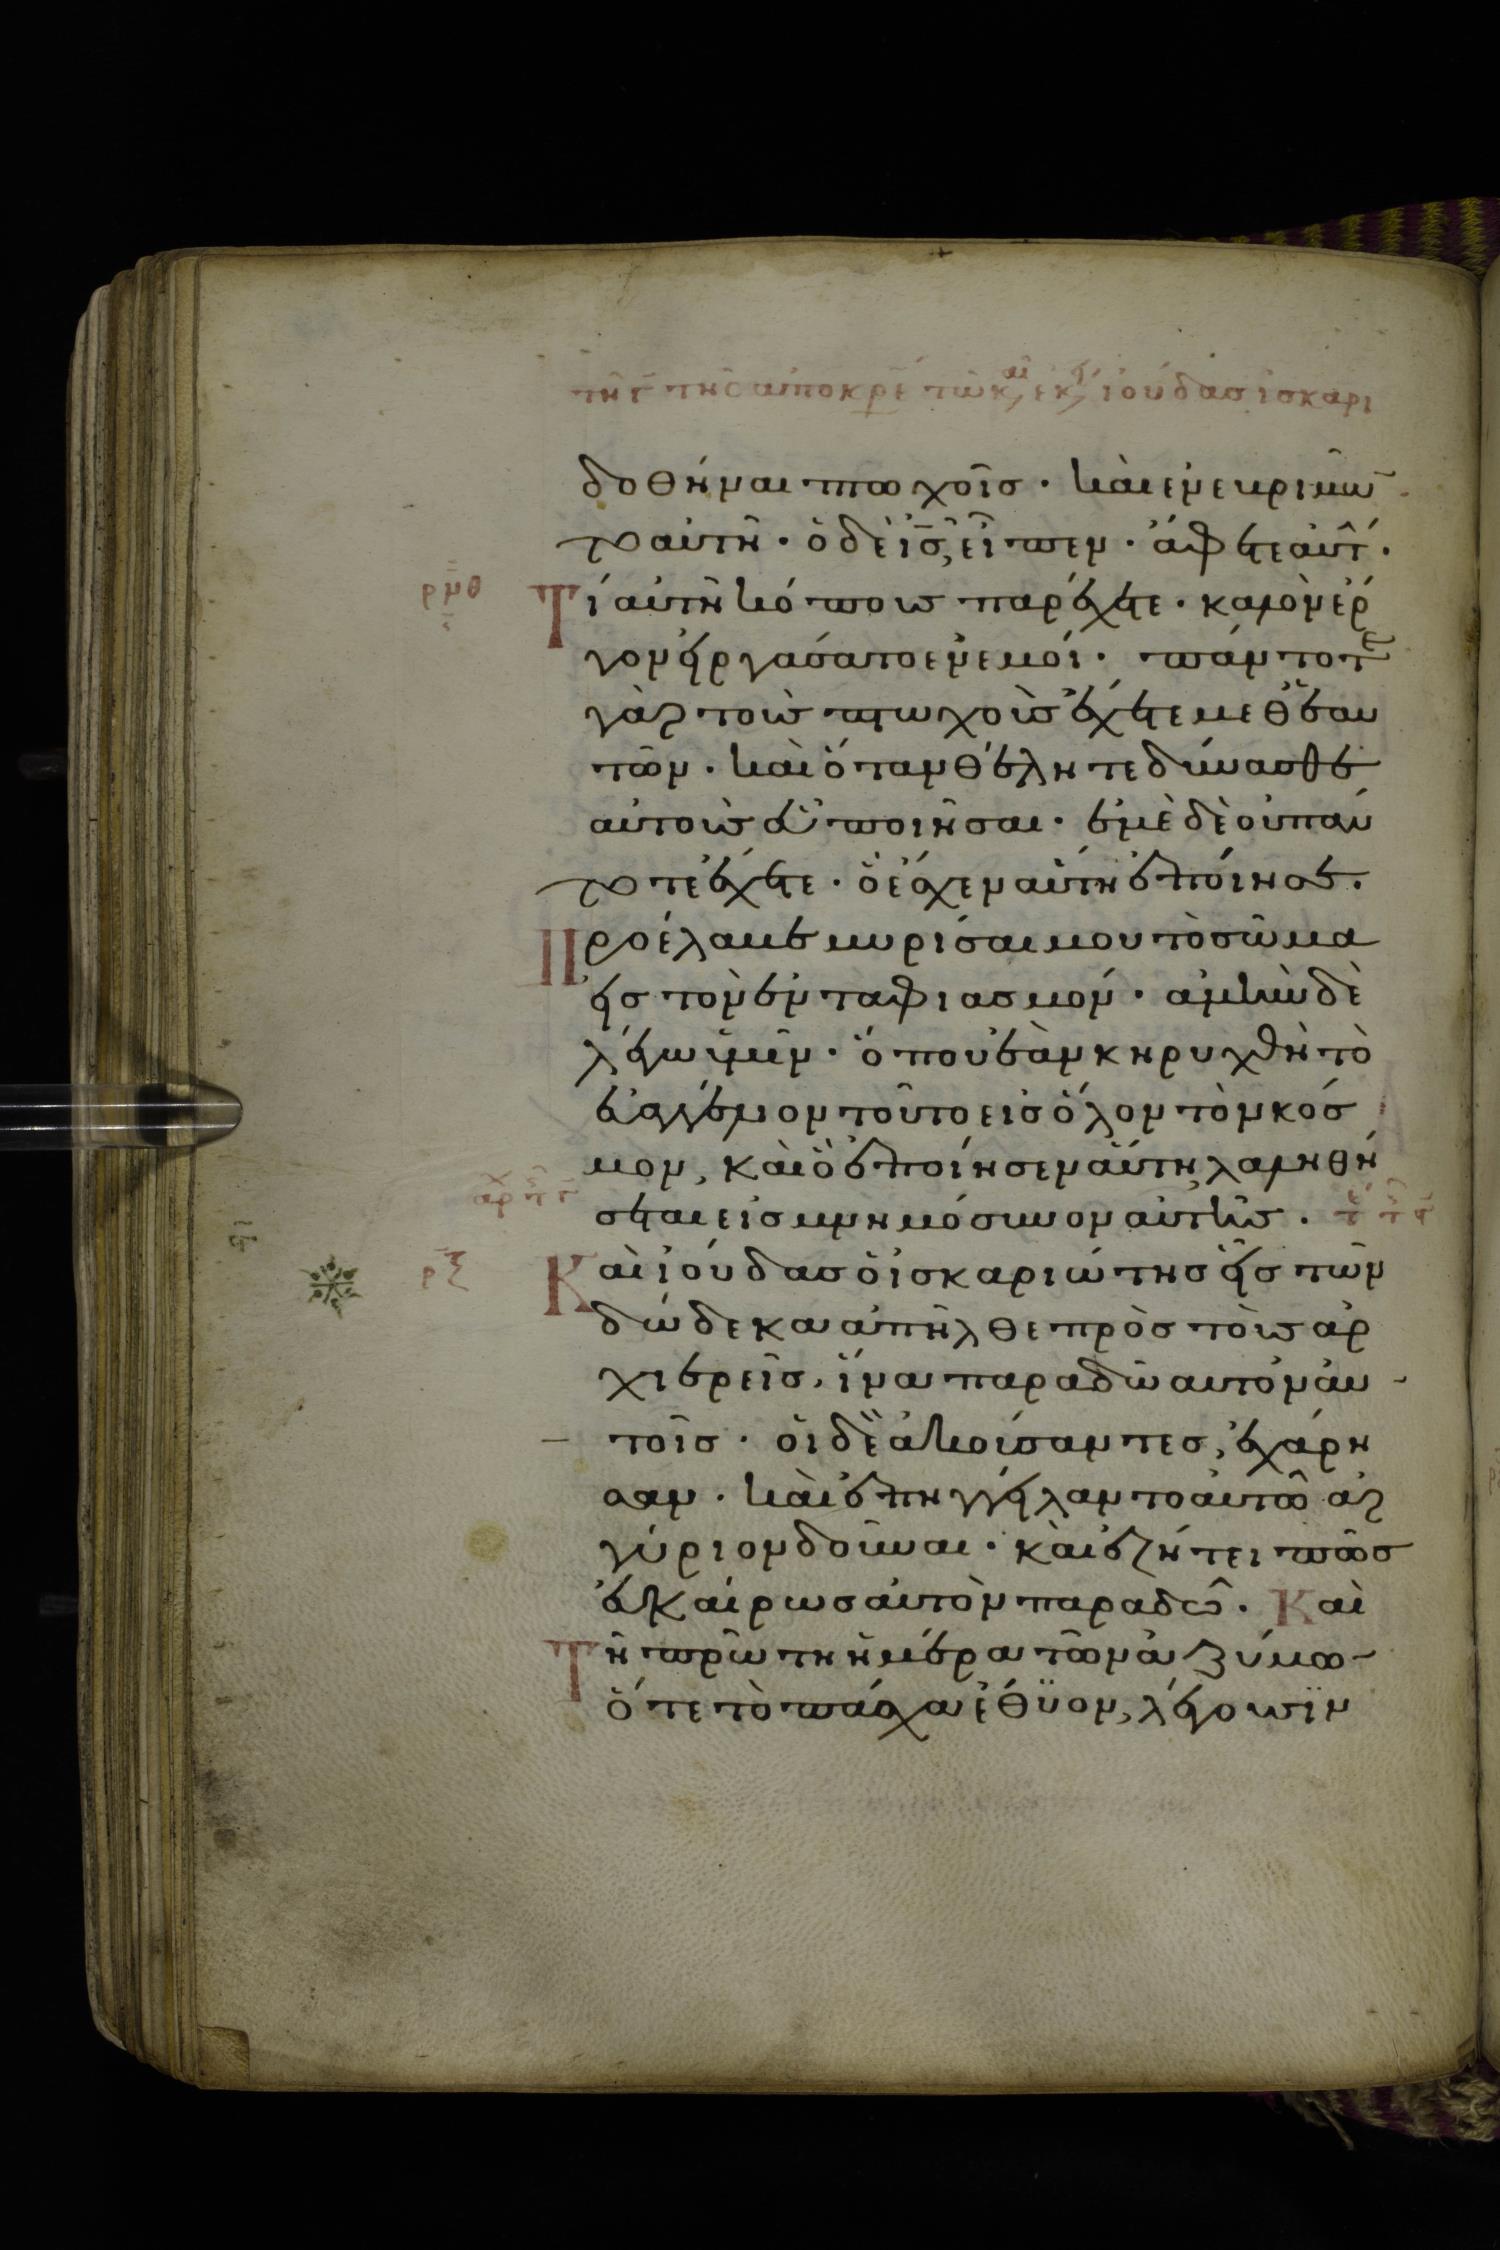 τῇ γ τῆς ἀποκρέ τῶ κ ἐκ ἰούδας ἰσκαρι
δοθῆναι πτωχοῖς · καὶ ἐνεβριμῶ
ντο αὐτῆ · ὁ δὲ ἰς, εἶπεν · ἄφετε αὐτ ·
ρμθ Τί αὐτῆ κόπους παρέχετε · καλὸν ἔρ
γον εἰργάσατο ἐν ἐμοί · πάντοτε
γὰρ τοὺς πτωχοὺς ἔχετε μεθ' ἑαυ
τῶν · καὶ ὅταν θέλητε δύνασθε
αὐτοὺς εὖ ποιῆσαι · ἐμὲ δὲ οὐ πάν
τοτε ἔχετε · ὃ ἔσχεν αὕτη ἐποίησε.
Προέλαβε μυρίσαι μου τὸ σῶμα
εἰς τὸν ἐνταφιασμόν · ἀμὴν δὲ
λέγω ὑμῖν · ὅπου ἐὰν κηρυχθῆ τὸ
εὐαγγέλιον τοῦτο εἰς ὅλον τὸν κόσ
μον, καὶ ὃ ἐποίησεν αὕτη, λαληθή
σεται εἰς μνημόσυνον αὐτῆς ·
ρξ Καὶ ἰούδας ὁ ἰσκαριώτης εἷς τῶν
δώδεκα ἀπῆλθε πρὸς τοὺς ἀρ
χιερεῖς, ἵνα παραδῶ αὐτὸν αὐ
τοῖς · οἱ δὲ ἀκούσαντες, ἐχάρη
σαν · καὶ ἐπηγγείλαντο αὐτῶ ἀρ
γύριον δοῦναι · καὶ ἐζήτει πῶς
εὐκαίρως αὐτὸν παραδῶ · Καὶ
Τῆ πρώτη ἡμέρα τῶν ἀζύμων
ὅτε τὸ πάσχα ἔθϋον, λέγουσϊν